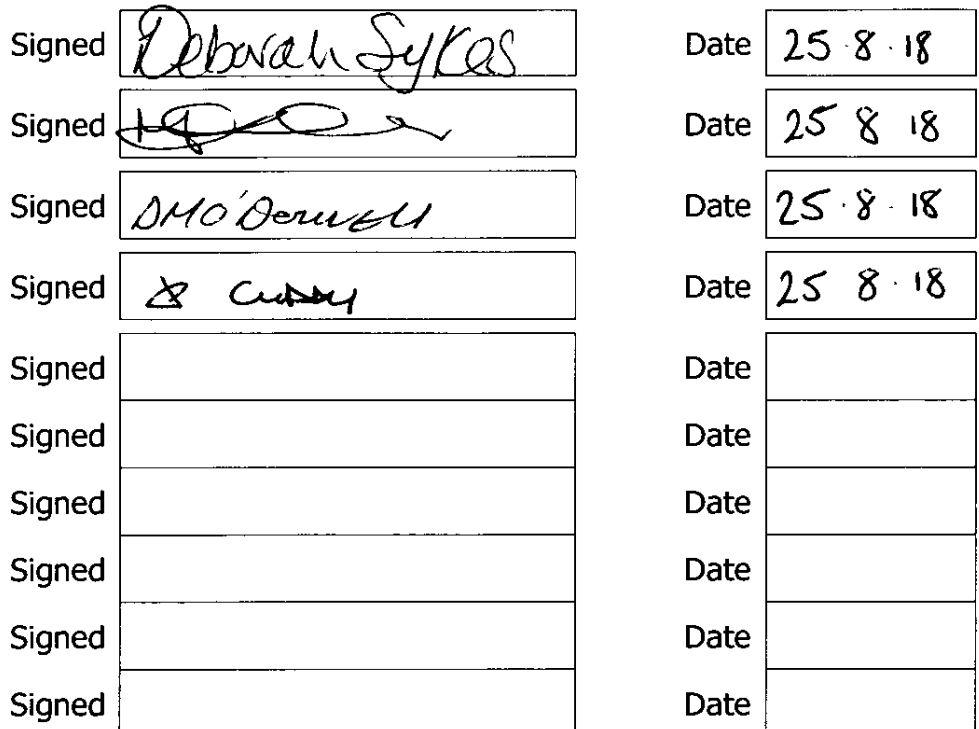 Signed Deborah Sykes Date 25.8.18
Signed Date 25 8 18
Signed DMO'Donnell Date 25.8.18
Signed Date 25 8.18
Signed Date
Signed Date
Signed Date
Signed Date
Signed Date
Signed Date